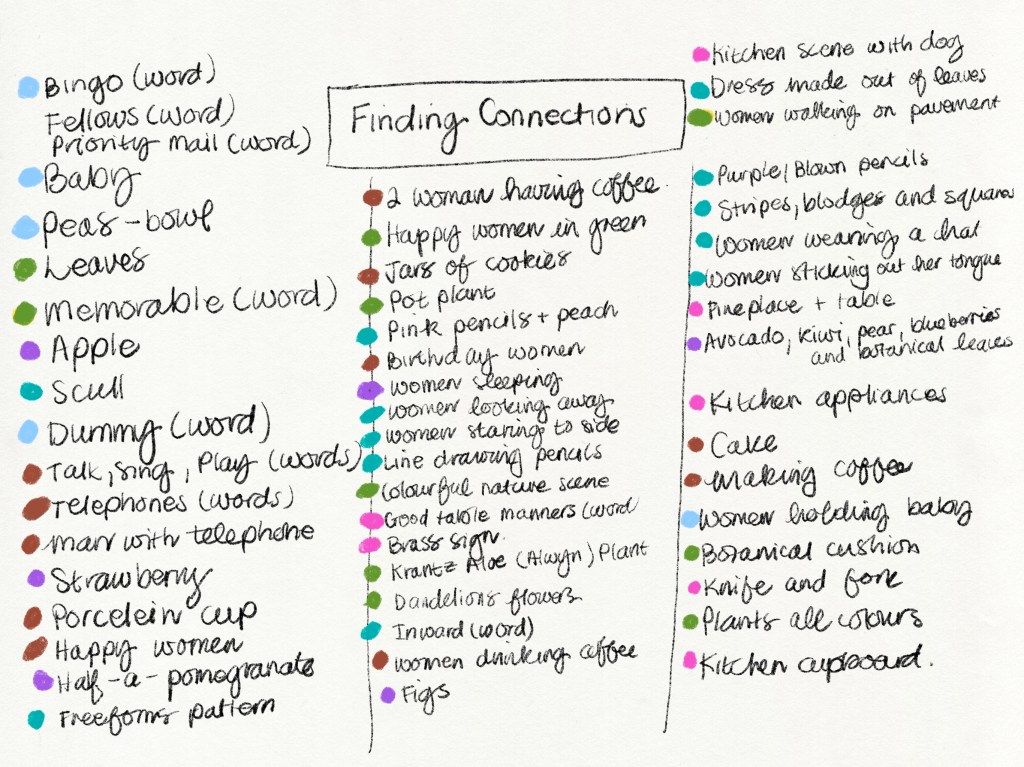 Bingo (word)
Fellows (word)
Priority mail (word)
Baby
Peas - bowl
Leaves
Memorable (word)
Apple
Scull
Dummy (word)
Talk, sing, Play (words)
Telephones (words)
man with telephone
Strawberry
Porcelein cup
Happy women
Half-a-pomogranate
Freefoms pattern
Finding Connections
2 woman having coffee.
Happy women in green
Jars of cookies
Pot plant
Pink pencils + peach
Birthday women
women sleeping
women looking away
women staring to side
Line drawing pencils
Colourful nature scene
Good table manners (word)
Brass sign.
Krantz Aloe (Alwyn) Plant
Dandelions flowers
Inward (word)
women drinking coffee
Figs
Kitchen scene with dog
Dress made out of leaves
women walking on pavement
Purple/Blown pencils
Stripes, blodges and squares
Women wearing a
Women sticking out her tongue
+ table
Avocado, kiwi, pear, blueberries
and botanical leaves
Kitchen appliances
Cake
making coffee
Women holding baby
Botanical cushion
Knife and fork
Plants all colours
Kitchen cupboard.